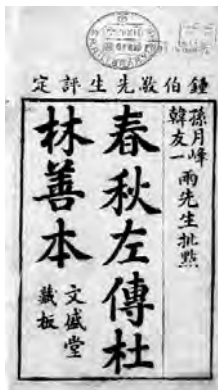 鍾伯敬先生評定
孫月峰
韓友一
兩先生批點
春秋左傳杜
林善本
文盛堂
藏板